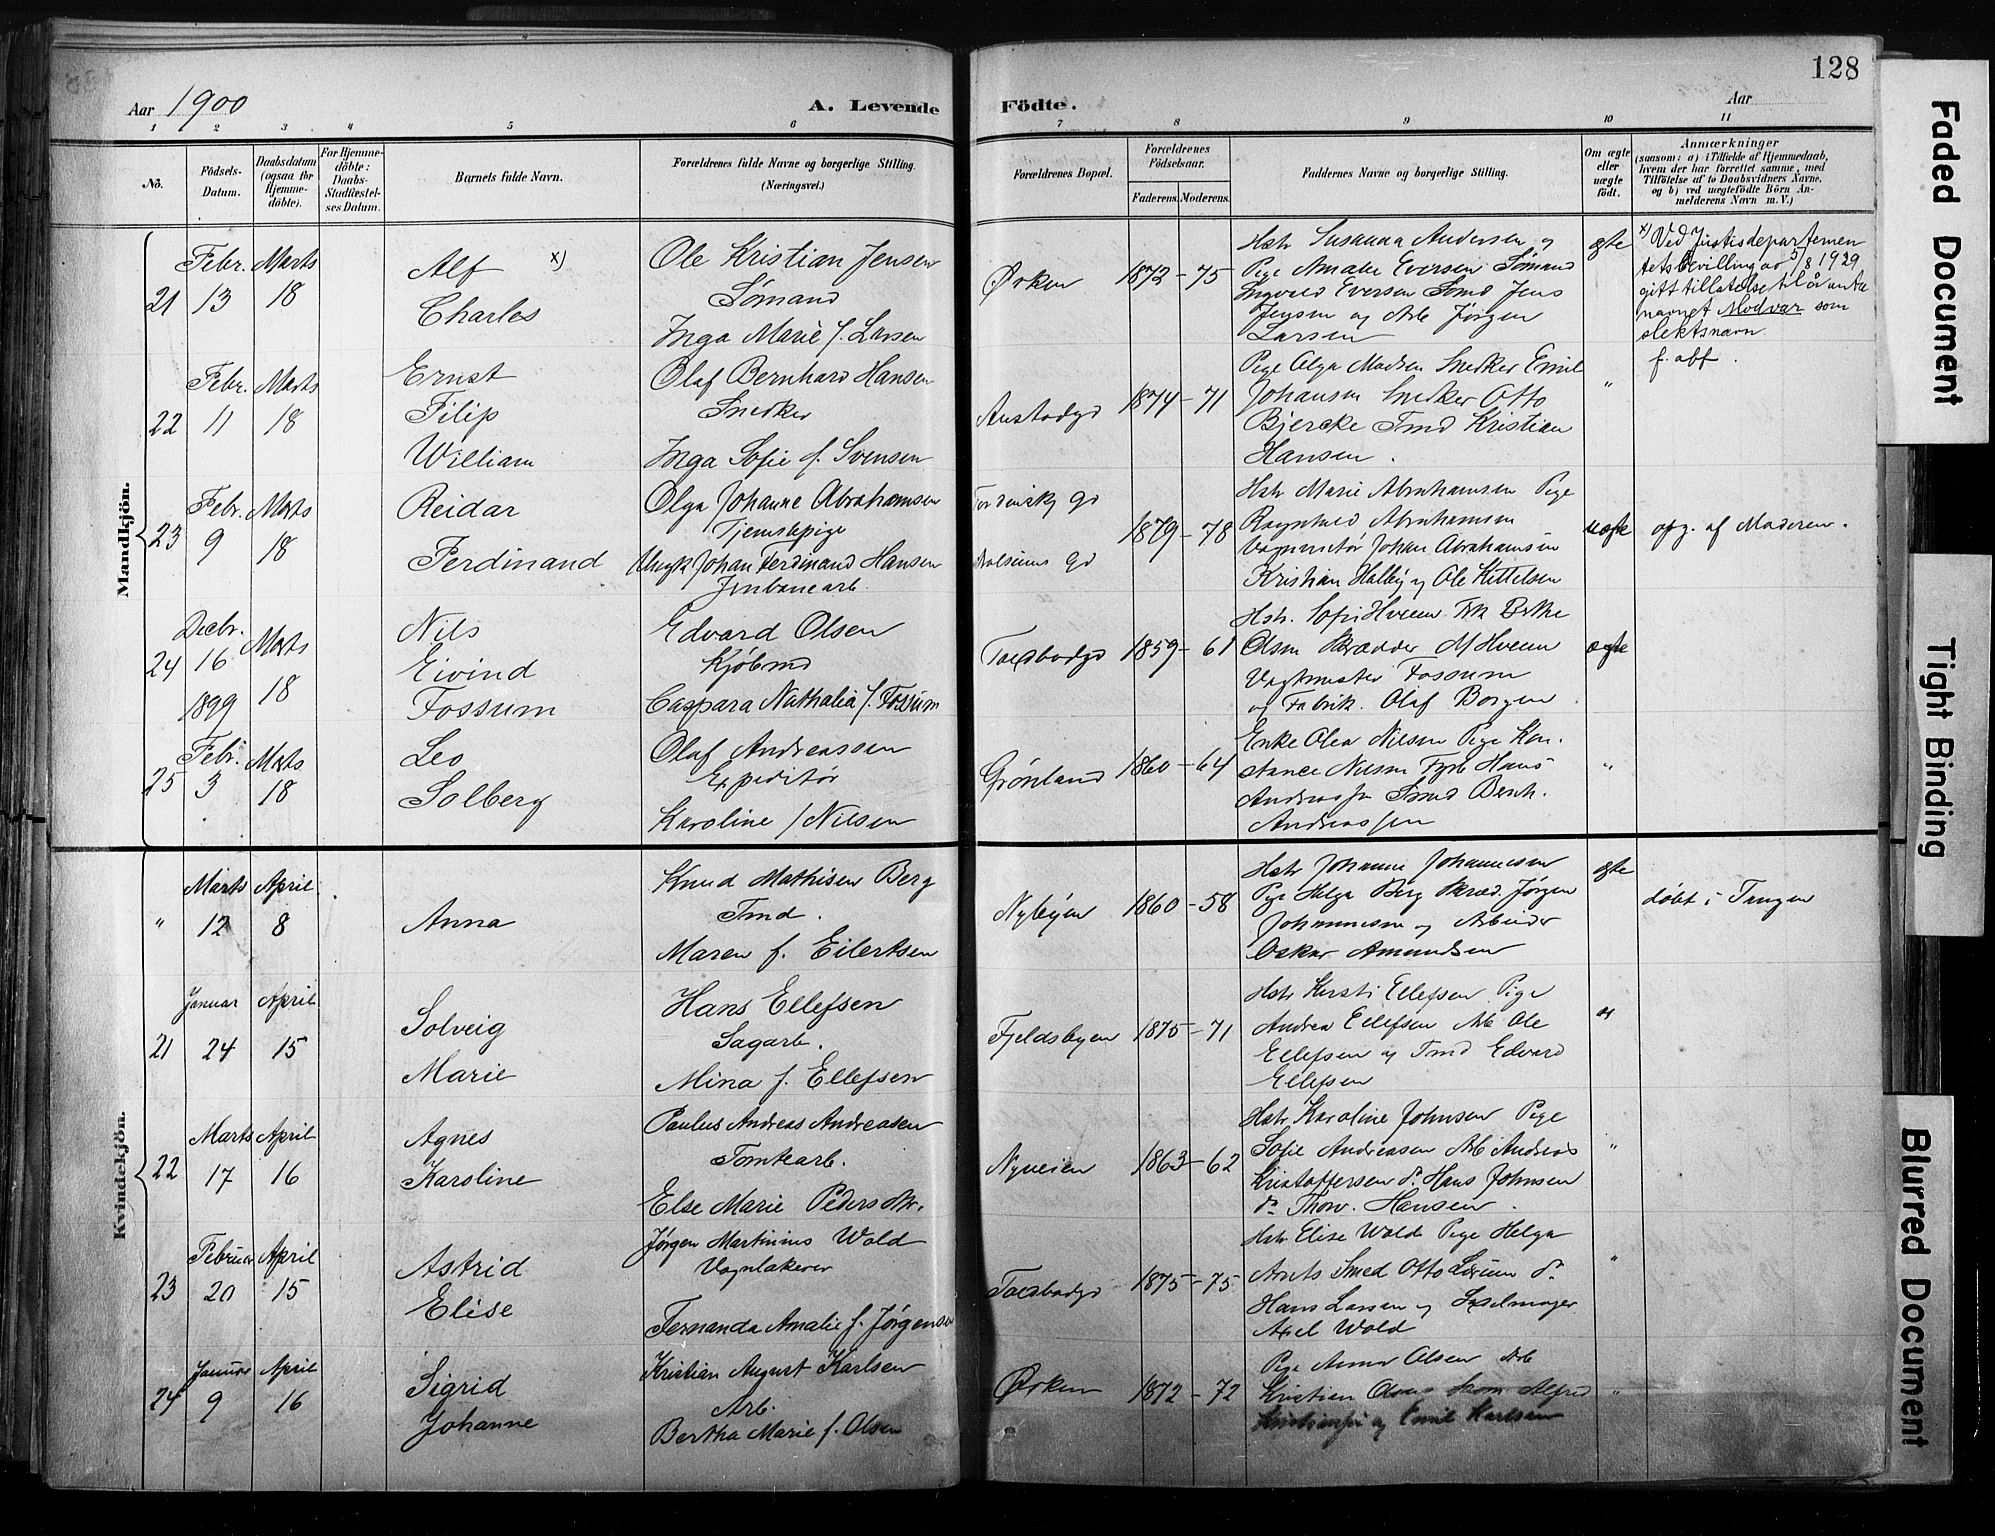 128
Aar 1900
A. Levende Födte.
Aar
1 2 3 4 5 6 7 8 9 10 11
No.
Födsels-Datum.
Daabsdatum (ogsaa for Hjemmedöbte).
For Hjemmedöbte: Daabs-Stadfæstelses Datum.
Barnets fulde Navn.
Forældrenes fulde Navne og borgerlige Stilling. (Næringsvei.)
Forældrenes Bopæl.
Forældrenes Födselsaar.
Faderens. Moderens.
Faddernes Navne og borgerlige Stilling.
Om ægte eller uægte födt.
Anmærkninger
(saasom: a) i Tilfælde af Hjemmedaab, hvem der har forrettet samme, med Tilföielse af to Daabsvidners Navne, og b) ved uægtefödte Börn Anmelderens Navn m. V.)
Mandkjön.
21
Febr. 13
Marts 18
Alf x)
Charles
Ole Kristian Jensen
Sømand
Inga Marie f. Larsen
Ørken
1872 - 75
Hstr Susanna Andersen og
Pige Amalie Eversen Sømand
Ingvald Eversen Sømd Jens
Jensen og Arb Jørgen
Larsen
ægte
x) Ved Justisdepartemen
tets bevilling av 5/8 1929
gitt tillatelse til å anta
navnet Modvar som
slektsnavn.
22
Febr. 11
Marts 18
Ernst
Filip
William
Olaf Bernhard Hansen
Snedker
Inga Sofie f. Svensen
1874 - 71
Pige Olga Madsen Snedker Emil
Johansen Snedker Otto
Bjercke Tmd Kristian
Hansen.
"
23
Febr. 9
Marts 18
Reidar
Ferdinand
Olga Johanne Abrahamsen
Tjenestepige
Ungk Johan Ferdinand Hansen
Jernbanearb.
1879 - 78
Hstr Marie Abrahamsen Pige
Ragnhild Abrahamsen
Johan Abrahamsen
Kristian Halby og Ole Kittelsen
uægte
opg. af Moderen.
24
Decbr. 16 1899
Marts 18
Nils
Eivind
Fossum
Edvard Olsen
Kjøbmd
Caspara Nathalia f. Fossum
1859 - 61
Hstr. Sofie Hveem Frk
Olsen Skrædder M Hveem
Vagtmester Fossum
og Fabrik. Olaf Borgen
ægte
25
Febr. 3
Marts 18
Leo
Solberg
Olaf Andreassen
Expeditør
Karoline f Nilsen
Grønland
1860 - 64
Enke Olea Nilsen Pige Kon-
stance Nilsen Fyrb Hans
Andreassen Smed Bernh.
Andreassen
"
Kvindekjön.
"
Marts 12
April 8
Anna
Knud Mathisen Berg
Tmd.
Maren f. Eilertsen
Nybyen
1860 - 58
Hstr Johanne Johannesen
Pige Helga Berg Skræd. Jørgen
Johannesen og Arbeider
Oskar Amundsen
ægte
døbt i Tangen
21
Januar 24
April 15
Solveig
Marie
Hans Ellefsen
Sagarb.
Mina f. Ellefsen
Fjeldsbyen
1875 - 71
Hstr Kersti Ellefsen Pige
Andrea Ellefsen Arb Ole
Ellefsen og Tmd Edvard
Ellefsen
"
22
Marts 17
April 16
Agnes
Karoline
Paulus Andreas Andreasen
Tomtearb.
Else Marie Pedersdtr.
Nyveien
1863 - 62
Hstr Karoline Johnsen Pige
Sofie Andreasen Arb Andreas
Kristoffersen do Hans Johnsen
do Thorv. Hansen.
"
23
Februar 20
April 15
Astrid
Elise
Jørgen Martinius Wold
Vognlakerer
Fernanda Amalie f. Jørgensen
1875 - 75
Hstr Elise Wold Pige Helga
Smed Otto do
Hans Larsen og Sadelmager
Axel Wold
"
24
Januar 9
April 16
Sigrid
Johanne
Kristian August Karlsen
Arb.
Bertha Marie f. Olsen
Ørken
1872 - 72
Pige Anna Olsen Arb
Kristian Alfred
og Emil Karlsen
"
Faded Document
Tight Binding
Blurred Document